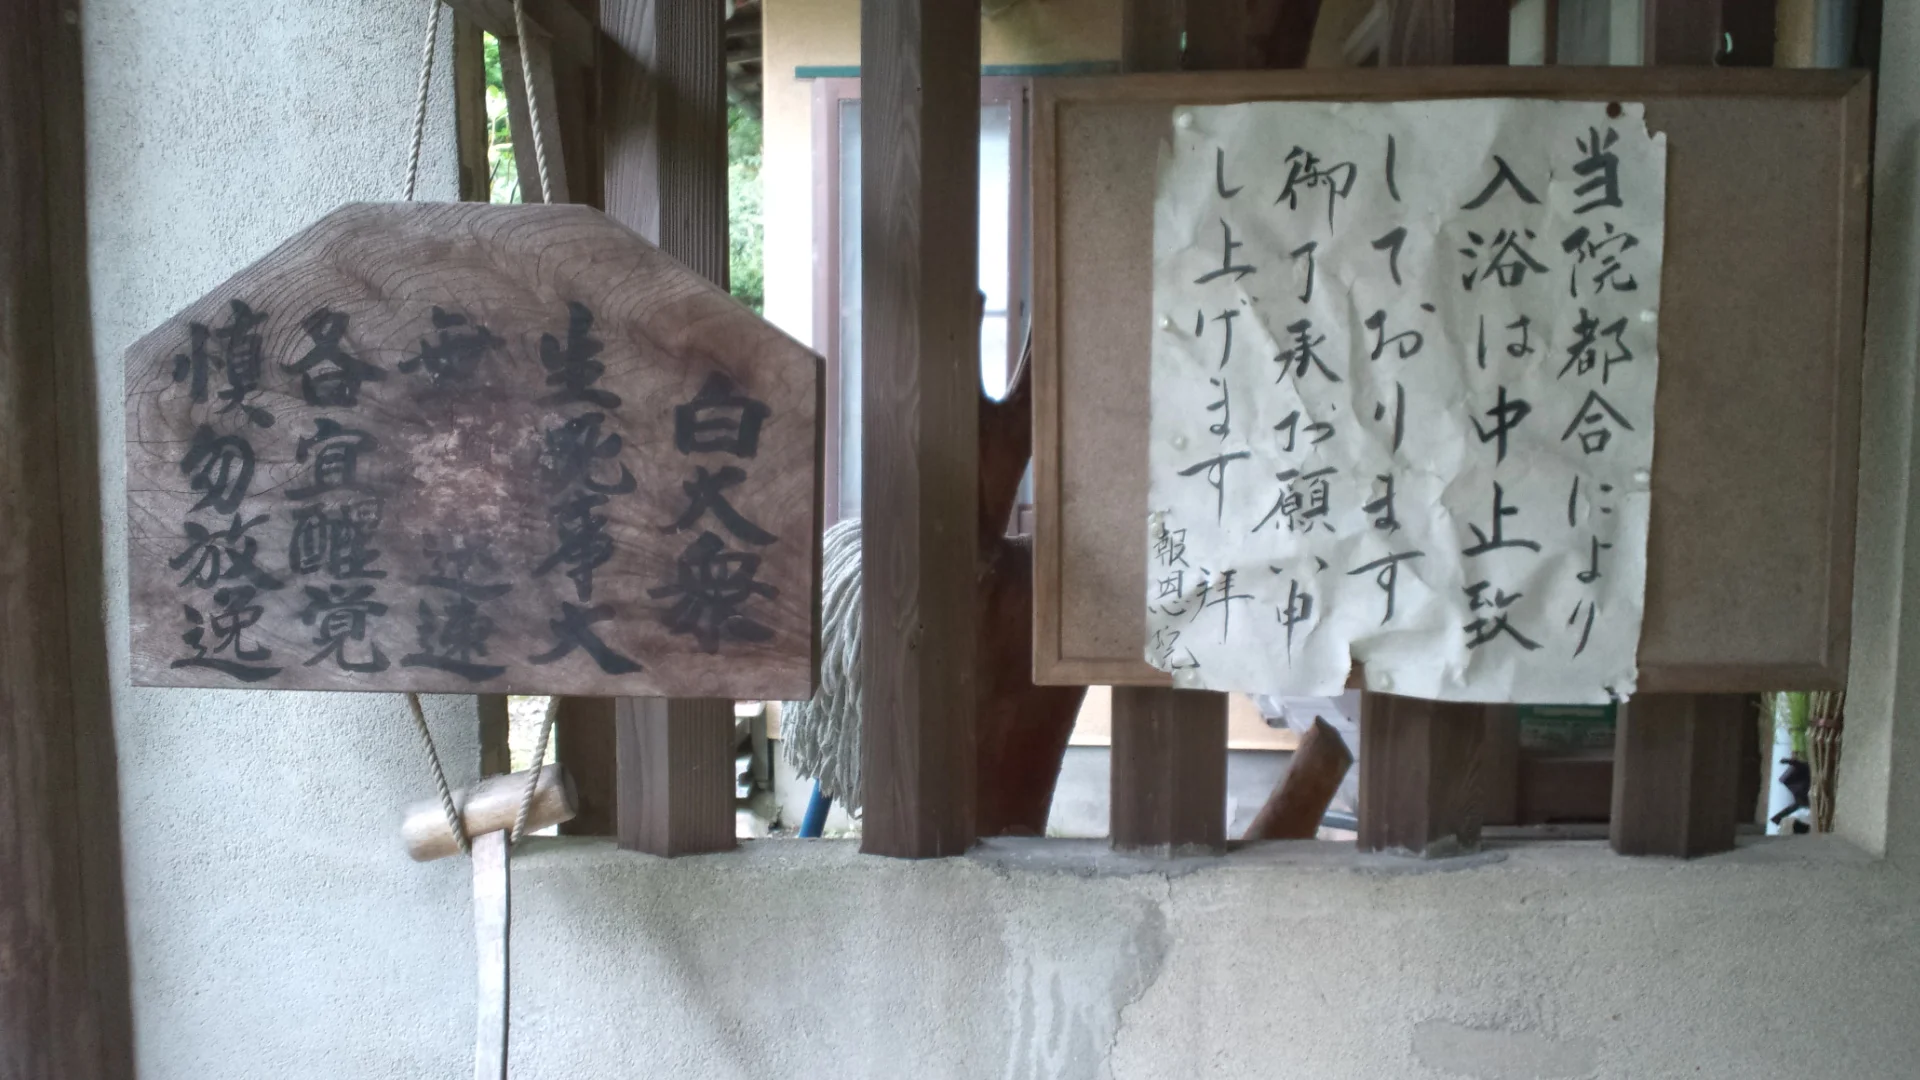 白大衆
生死事大
無迅速
各宜醒覚
慎勿放逸
当院都合により
入浴は中止致
しております
御了承お願い申
し上げます 拝
報恩院